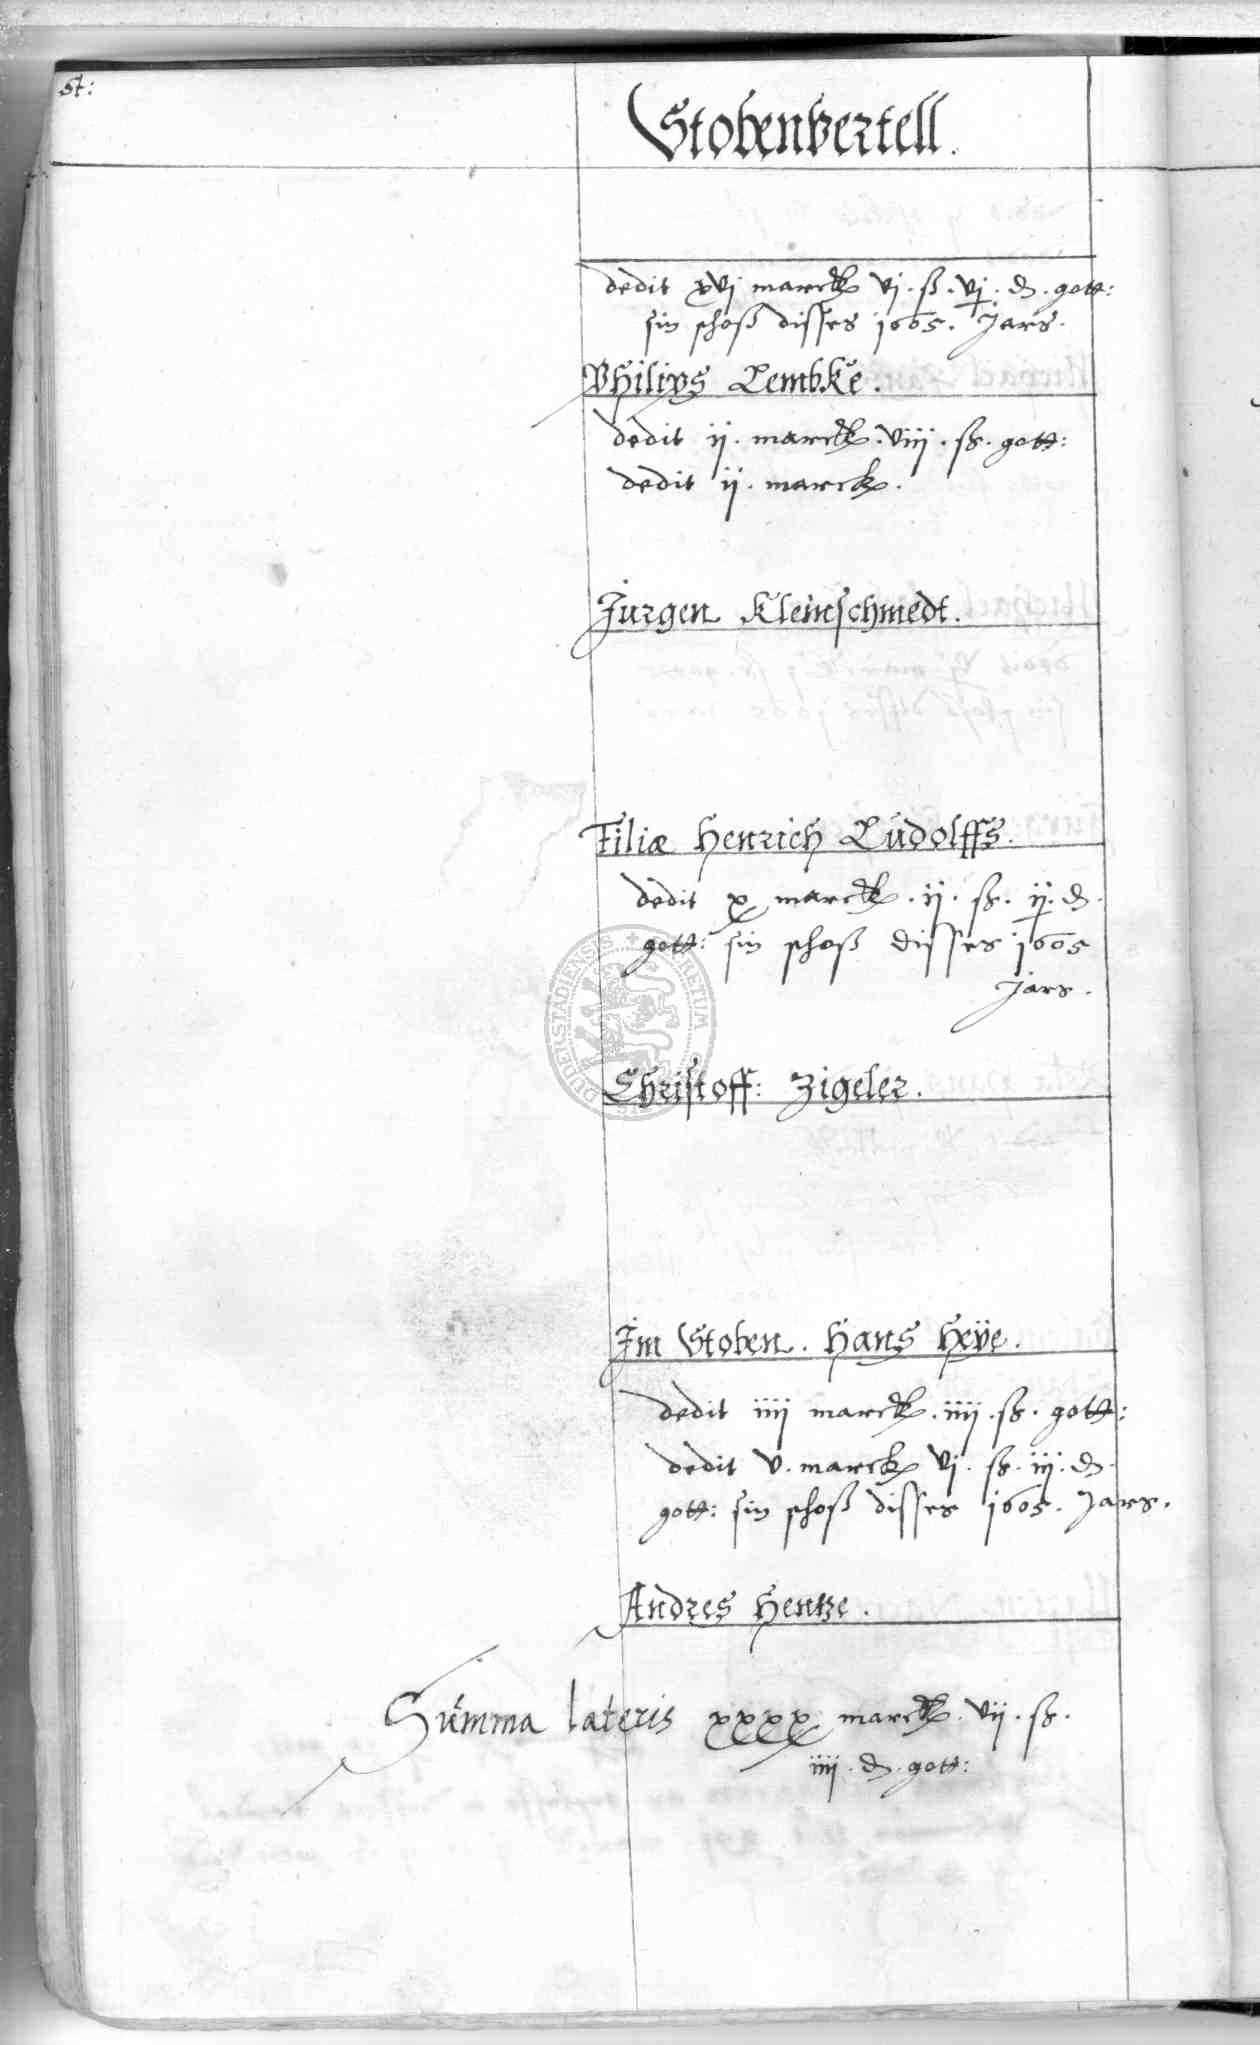 st:
Stobenvertell.
dedit xvj marck vj. ß. vj. d. gott:
sin schoß disses 1605. Jars.
Philips Lembke.
dedit ij. marck. viij. ß. gott:
dedit ij. marck.
Jurgen Kleinschmedt.
Filiæ Henrich Ludolffs.
dedit x marck. ij. ß. ij. d.
gott: sin schoß disses 1605
Jars.
Christoff: Zigeler.
Jm Stoben. Hans Heÿe.
dedit iiij marck. iiij. ß. gott:
dedit v. marck vj. ß. iij. d.
gott: sin schoß disses 1605. Jars.
Andres Hentze.
Summa lateris xxxx marck. vij. ß.
iiij. d. gott: